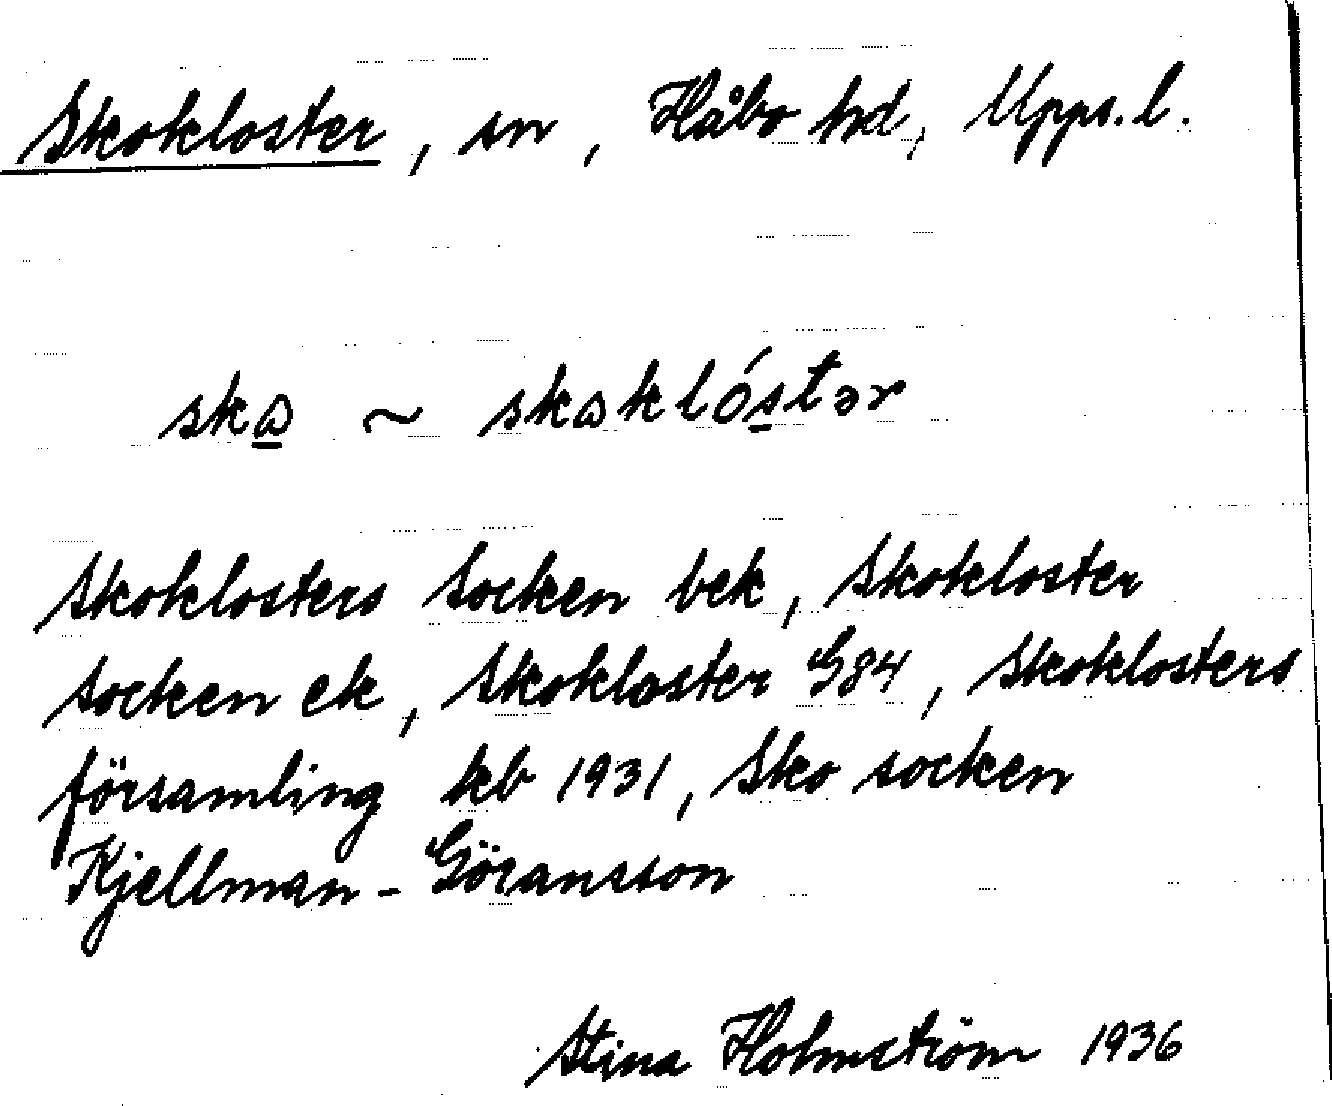 Skokloster, sn, Håbo hd, Upps. l.
skɷ ~ skɷklóstər
Skoklosters Socken bek, Skokloster
socken ek, Skokloster G84, Skoklosters
församling kb 1931, Sko socken
Kjellman-Göransson
Stina Holmström 1936